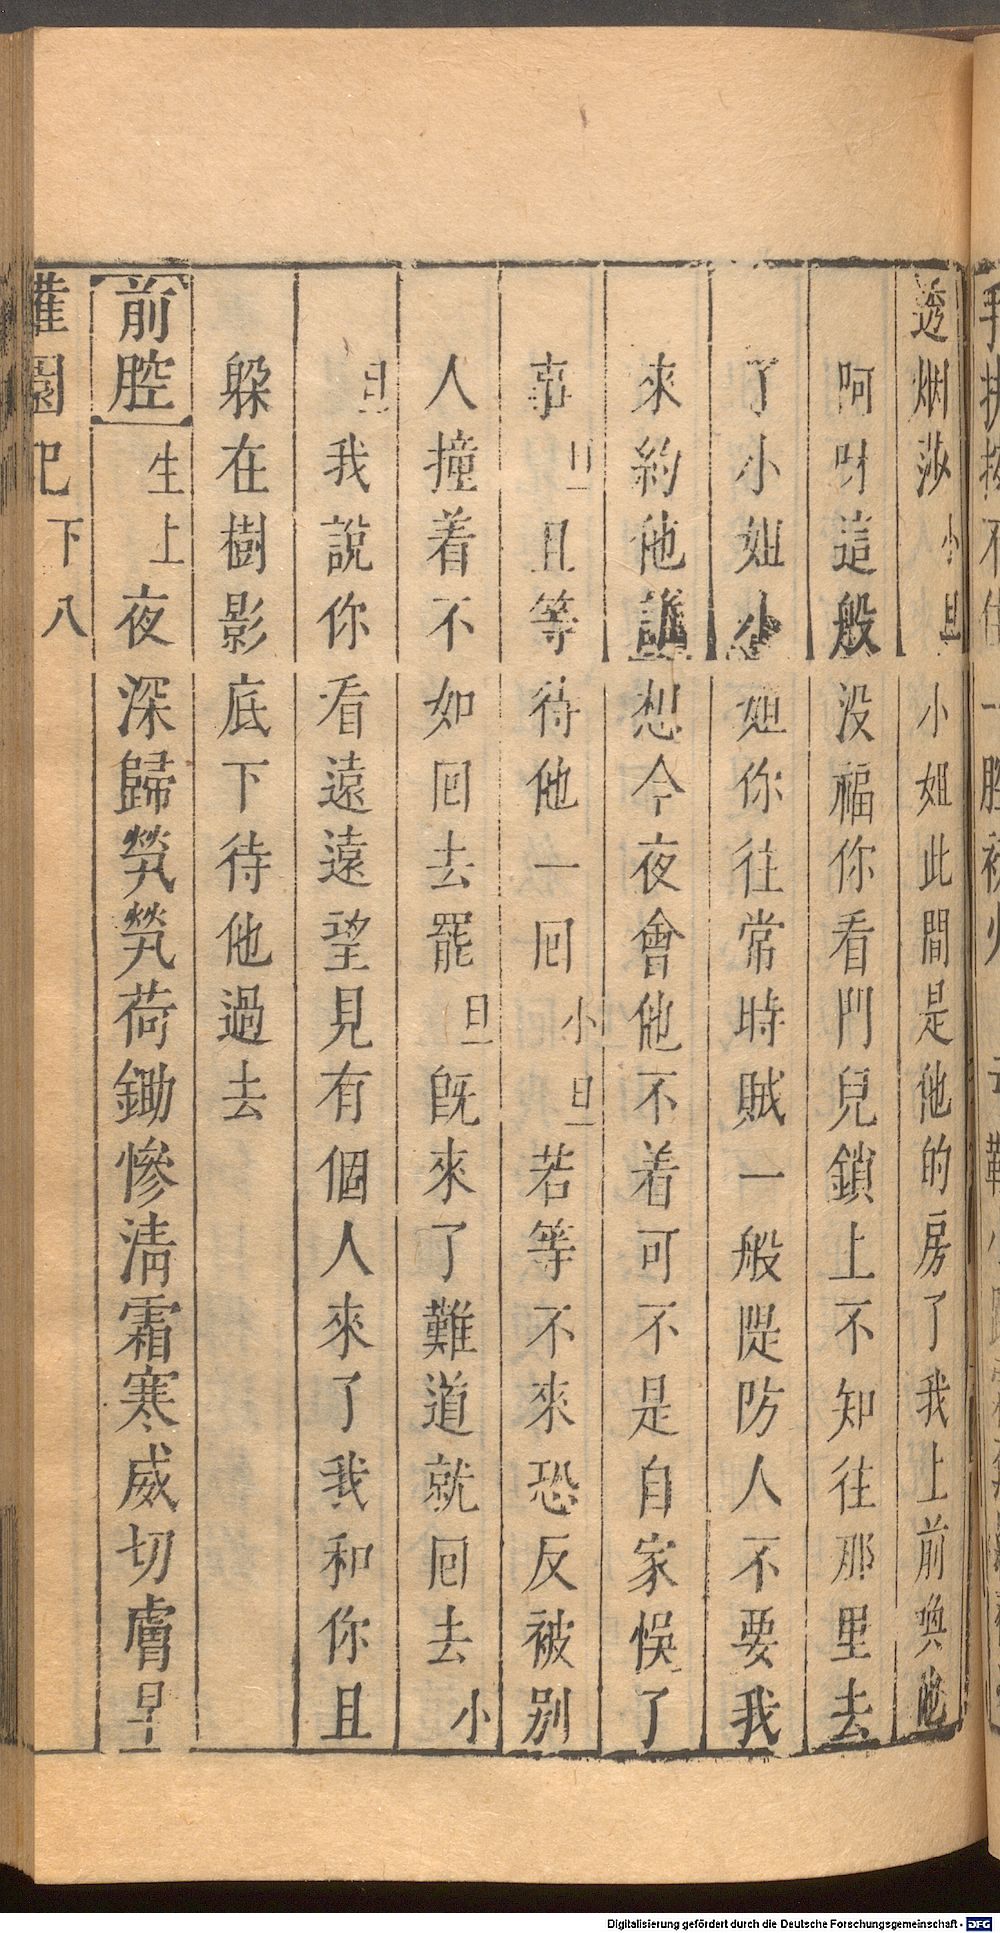 透烟莎小旦小姐此間是他的房了我上前喚他
呵呀這般没福你看門兒鎖上不知往那里去
了小姐小姐你往常時賊一般隄防人不要我
來約他講想今夜會他不着可不是自家悞了
事旦且等待他一囘小旦若等不來恐反被别
人撞着不如囘去罷旦旣來了難道就囘去小
旦我說你看遠遠望見有個人來了我和你且
躲在樹影底下待他過去
前腔生上夜深歸煢煢荷鋤慘淸霜寒威切膚早
灌園記下八
Digitalisierung gefördert durch die Deutsche Forschungsgemeinschaft - DFG